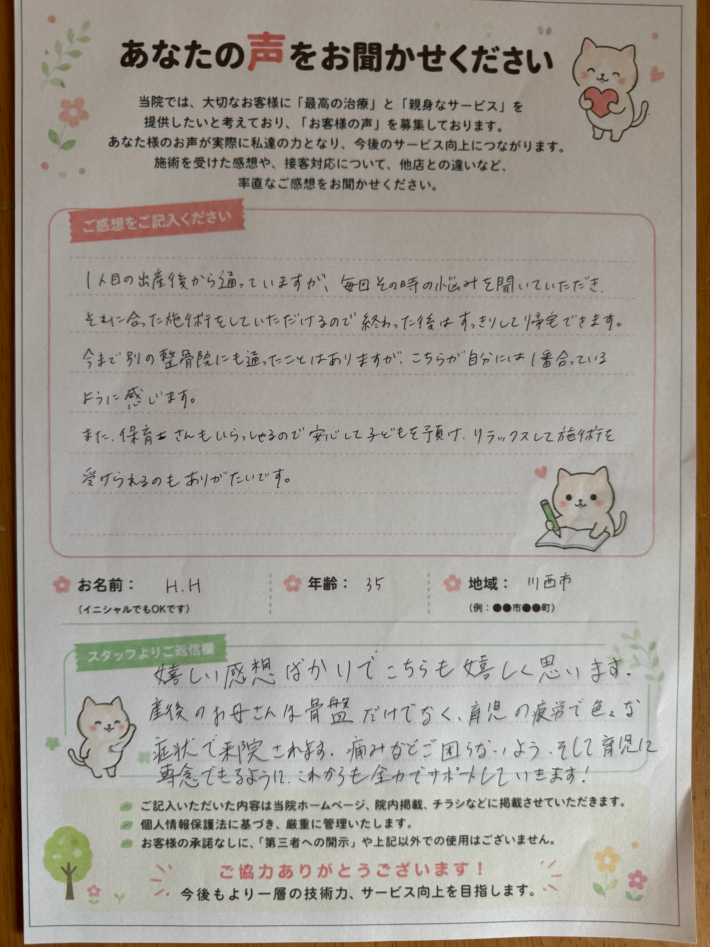 あなたの声をお聞かせください
当院では、大切なお客様に「最高の治療」と「親身なサービス」を
提供したいと考えており、「お客様の声」を募集しております。
あなた様のお声が実際に私達の力となり、今後のサービス向上につながります。
施術を受けた感想や、接客対応について、他店との違いなど、
率直なご感想をお聞かせください。
ご感想をご記入ください
1人目の出産後から通っていますが、毎回その時の悩みを聞いていただき、
それに合った施術をしていただけるので終わった後はすっきりして帰宅できます。
今まで別の整骨院にも通ったことはありますが、こちらが自分には1番合っている
ように感じます。
また、保育士さんもいらっしゃるので安心して子どもを預け、リラックスして施術を
受けられるのもありがたいです。
お名前： H.H 年齢： 35 地域： 川西市
（イニシャルでもOKです） （例：●●市●●町）
スタッフよりご返信欄
嬉しい感想ばかりでこちらも嬉しく思います。
産後のお母さんは骨盤だけでなく、育児の疲労で色々な
症状で来院されます。痛みなどご困らないよう、そして育児に
専念できるように、これからも全力でサポートしていきます！
ご記入いただいた内容は当院ホームページ、院内掲載、チラシなどに掲載させていただきます。
個人情報保護法に基づき、厳重に管理いたします。
お客様の承諾なしに、「第三者への開示」や上記以外での使用はございません。
ご協力ありがとうございます！
今後もより一層の技術力、サービス向上を目指します。